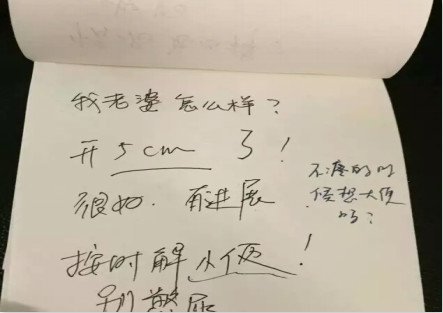 我老婆怎么样？
开5cm了！
很好．有进展
不疼的时
候想大便
吗？
按时解小便！
别憋尿